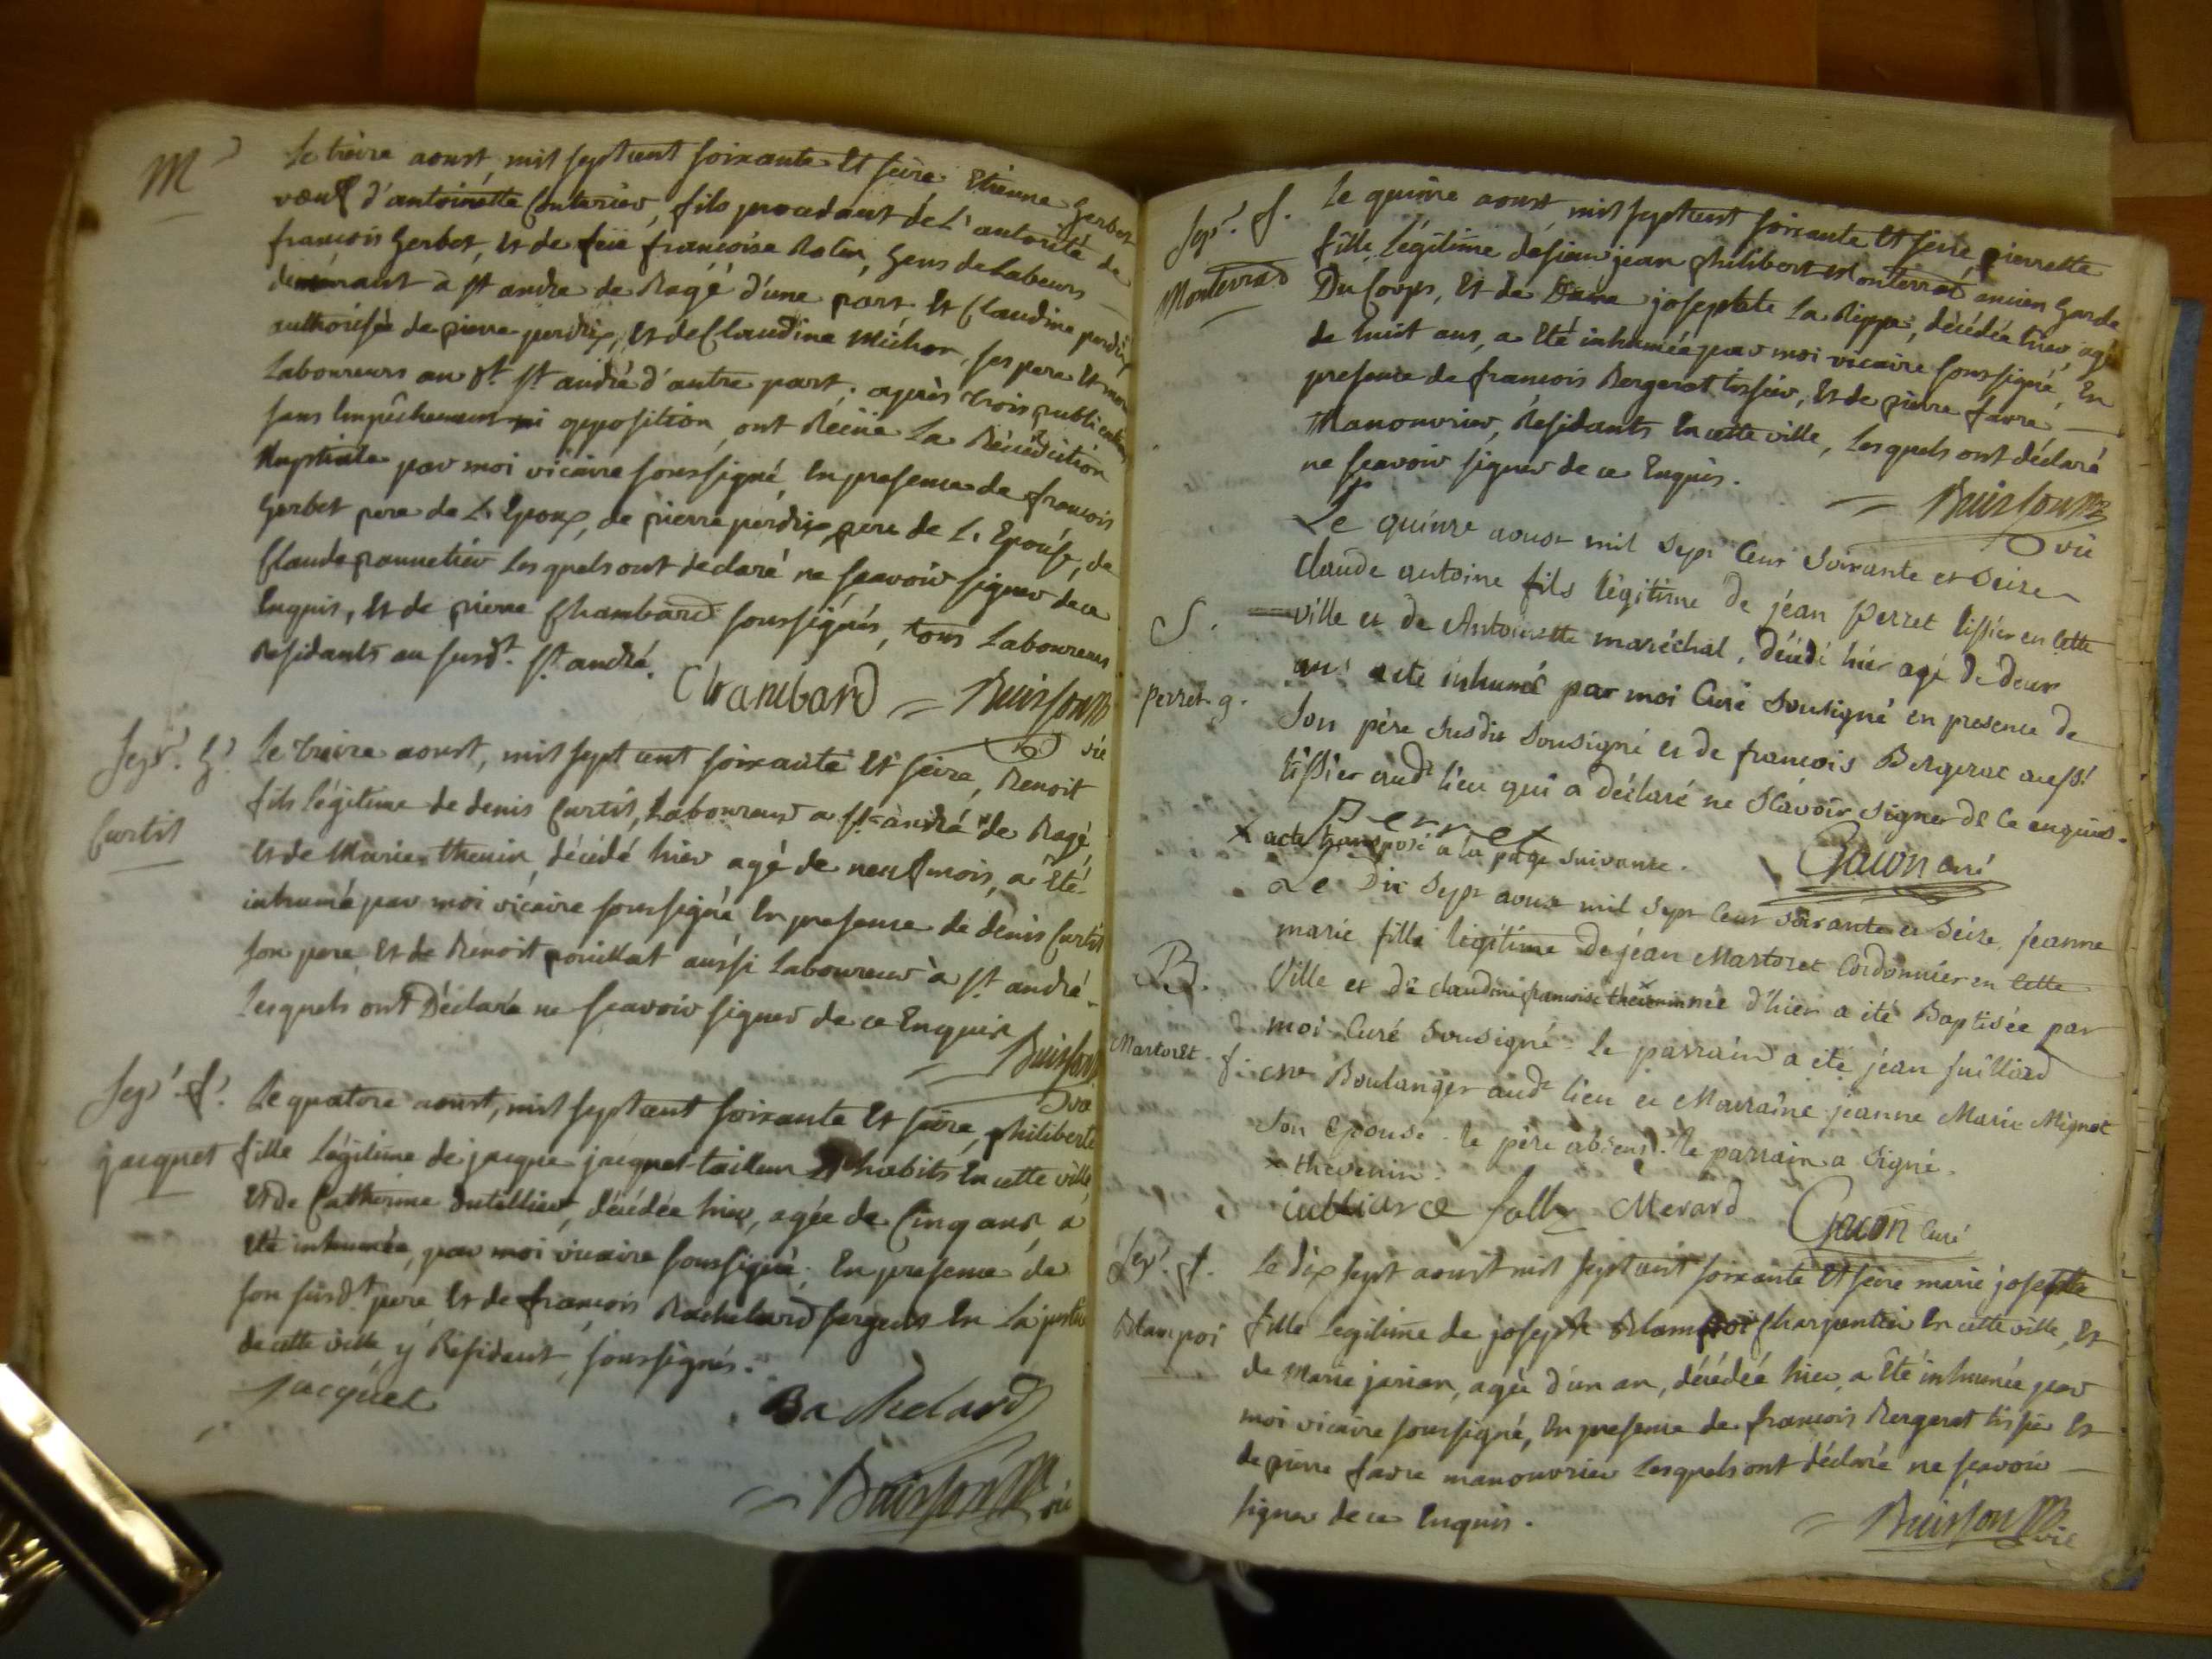 M
Le treize aoust, mil sept cent soixante Et seize Etienne Gerbet
vœuf d'antoinette Conterier, fils procedant de L'autorité de
françois Gerbet, Et de feüe françoise Rolin, Gens de Labeurs
demeurant a St andre de Bagé d'une part, Et Claudine perdrix
authorisée de pierre perdrix, Et de Claudine Michon, ses pere Et mere
Laboureurs au dt. St andré d'autre part; après trois publications
sans Empêchement ni opposition, ont Reçüe La Bénédiction
Nuptiale par moi vicaire soussigné, En presence de françois
Gerbet pere de L'Epoux, de pierre perdrix pere de L'Epouse, de
Claude pannetier Lesquels ont declaré ne sçavoir signer de ce
Enquis, Et de pierre Chambard soussignés, tous Laboureurs
Residants au susdt. St andré.
Chambard Buisson vic
Sep.r G.
Curtit
Le treize aoust, mil sept cent soixante Et seize, Benoit
fils Légitime de denis Curtit, Laboureur a St andré de Bagé
Et de Marie thenin, décédé hier agé de neuf mois, a Eté
inhumé par moi vicaire soussigné En presence de denis Curtit
son pere, Et de Benoit pouillat aussi Laboureur à St andré
Lesquels ont Déclaré ne sçavoir signer de ce Enquis
Buisson vic
Sep.r f.
jacquet
Le quatorze aoust, mil sept cent soixante Et seize, philiberte
fille Légitime de jacque jacquet tailleur d'habits En cette ville,
Et de Catherine dutillier, décédée hier, agée de Cinq ans, a
Eté inhumée, par moi vicaire soussigné, En presence de
son susdt pere Et de françois Bachelard sergent En La justice
de cette ville y Résidant, soussignés.
jacquet Bachelard
Buisson vic
Sep.r f.
Monterrad
Le quinze aoust mil sept cent soixante Et seize, pierrette
fille Légitime de sieur jean philibert Monterrad ancien Garde
Du Corps, Et de Dame josephte La Rippe, décédée hier agée
de huit ans, a Eté inhumée par moi vicaire soussigné, En
presence de françois Bergerat tissier, Et de pierre favre
Manouvrier, Résidants En cette ville, Lesquels ont déclaré
ne sçavoir signer de ce Enquis.
Buisson vic
S.
perret. g.
Le quinze aoust mil sept Cent Soixante et Seize
Claude antoine fils légitime de jéan Perret tissier en Cette
ville et de Antoinette maréchal, décédé hier agé de deux
ans a eté inhumé par moi Curé Sousigné en presence de
Son père susdit Sousigné et de françois Bergerat aussi
tissier audt lieu qui a déclaré ne Sçavoir Signer de Ce enquis.
Perret
x acte transposé a la page suivante. Gacon Curé
B.
Martoret. f.
Le Dix Sept aoust mil Sept Cent Soixante et Seize, Jeanne
marie fille légitime de jéan Martoret Cordonnier en Cette
Ville et de claudine françoise thevenin née d'hier a eté Baptisée par
moi Curé Sousigné. le parrain a eté jéan juilliard
Boulanger audt lieu et Marraine jeanne Marie Mignot
Son épouse. le père absent. le parrain a Signé.
x thevenin.
iulliard Merard Gacon Curé
Sep.r f.
Blampoi
Le dix sept aoust mil sept cent soixante Et seize marie josephte
fille Legitime de joseph Blampoi Charpentier En cette ville, Et
de Marie jarian, agée d'un an, décédée hier, a Eté inhumée par
moi vicaire soussigné, En presence de françois Bergerat tissier Et
de pierre favre manouvrier Lesquels ont déclaré ne sçavoir
signer de ce Enquis.
Buisson vic